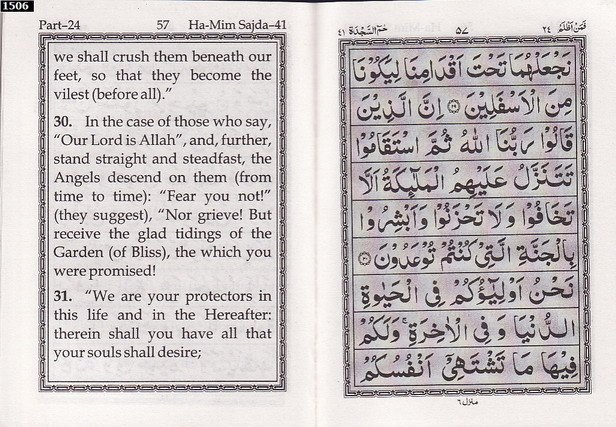 1506
Part–24 57 Ha-Mim Sajda–41
we shall crush them beneath our
feet, so that they become the
vilest (before all).”
30. In the case of those who say,
“Our Lord is Allah”, and, further,
stand straight and steadfast, the
Angels descend on them (from
time to time): “Fear you not!”
(they suggest), “Nor grieve! But
receive the glad tidings of the
Garden (of Bliss), the which you
were promised!
31. “We are your protectors in
this life and in the Hereafter:
therein shall you have all that
your souls shall desire;
فَمَنْ اَظْلَمُ ٢٤ ٥٧ حٰمٓ السَّجْدَة ٤١
نَجْعَلْهُمَا تَحْتَ اَقْدَامِنَا لِيَكُوْنَا
مِنَ الْاَسْفَلِيْنَ ۝٢٩ اِنَّ الَّذِيْنَ
قَالُوْا رَبُّنَا اللّٰهُ ثُمَّ اسْتَقَامُوْا
تَتَنَزَّلُ عَلَيْهِمُ الْمَلٰٓئِكَةُ اَلَّا
تَخَافُوْا وَلَا تَحْزَنُوْا وَاَبْشِرُوْا
بِالْجَنَّةِ الَّتِيْ كُنْتُمْ تُوْعَدُوْنَ ۝٣٠
نَحْنُ اَوْلِيٰٓؤُكُمْ فِي الْحَيٰوةِ
الدُّنْيَا وَفِي الْاٰخِرَةِ ۚ وَلَكُمْ
فِيْهَا مَا تَشْتَهِيْٓ اَنْفُسُكُمْ
منزل ٦